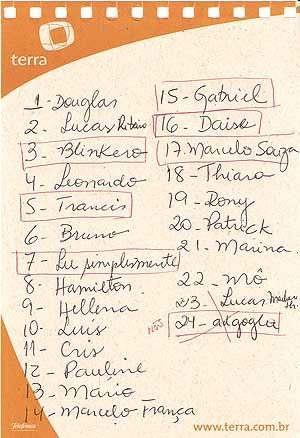 terra
1- Douglas
2- Lucas Ribeiro
3- Blinkero
4- Leonardo
5- Francis
6- Bruno
7- Lu simplesmente
8- Hamilton
9- Hellena
10- Luis
11- Cris
12- Pauline
13- Mário
14- Marcelo França
15- Gabriel
16- Daise
17- Marcelo Souza
18- Thiara
19- Rony
20- Patrick
21- Marina
22- Mô
23- Lucas
24-
Telefonica
www.terra.com.br